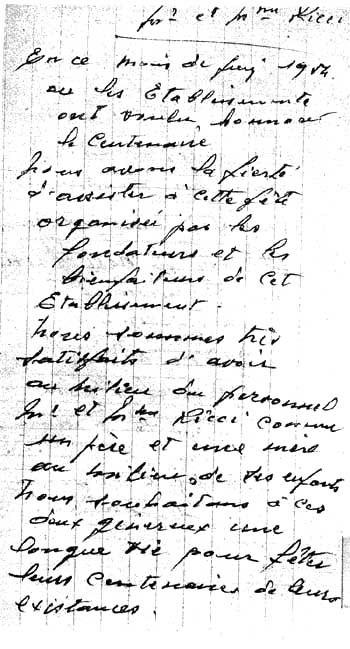 Mr et Mme Ricci
En ce mois de juin 19
ou les Etablissements
ont voulu donner
le Centenaire
Nous avons la fierté
d'assister à cette fête
organisée par les
fondateurs et les
bienfaiteurs de cet
Etablissement.
Nous sommes très
satisfaits d'avoir
au milieu du personnel
Mr et Mme Ricci comme
un père et une mère
au milieu de ses enfants
Nous souhaitons à ces
deux genereux une
longue vie pour fêter
leurs Centenaires de leurs
existances.